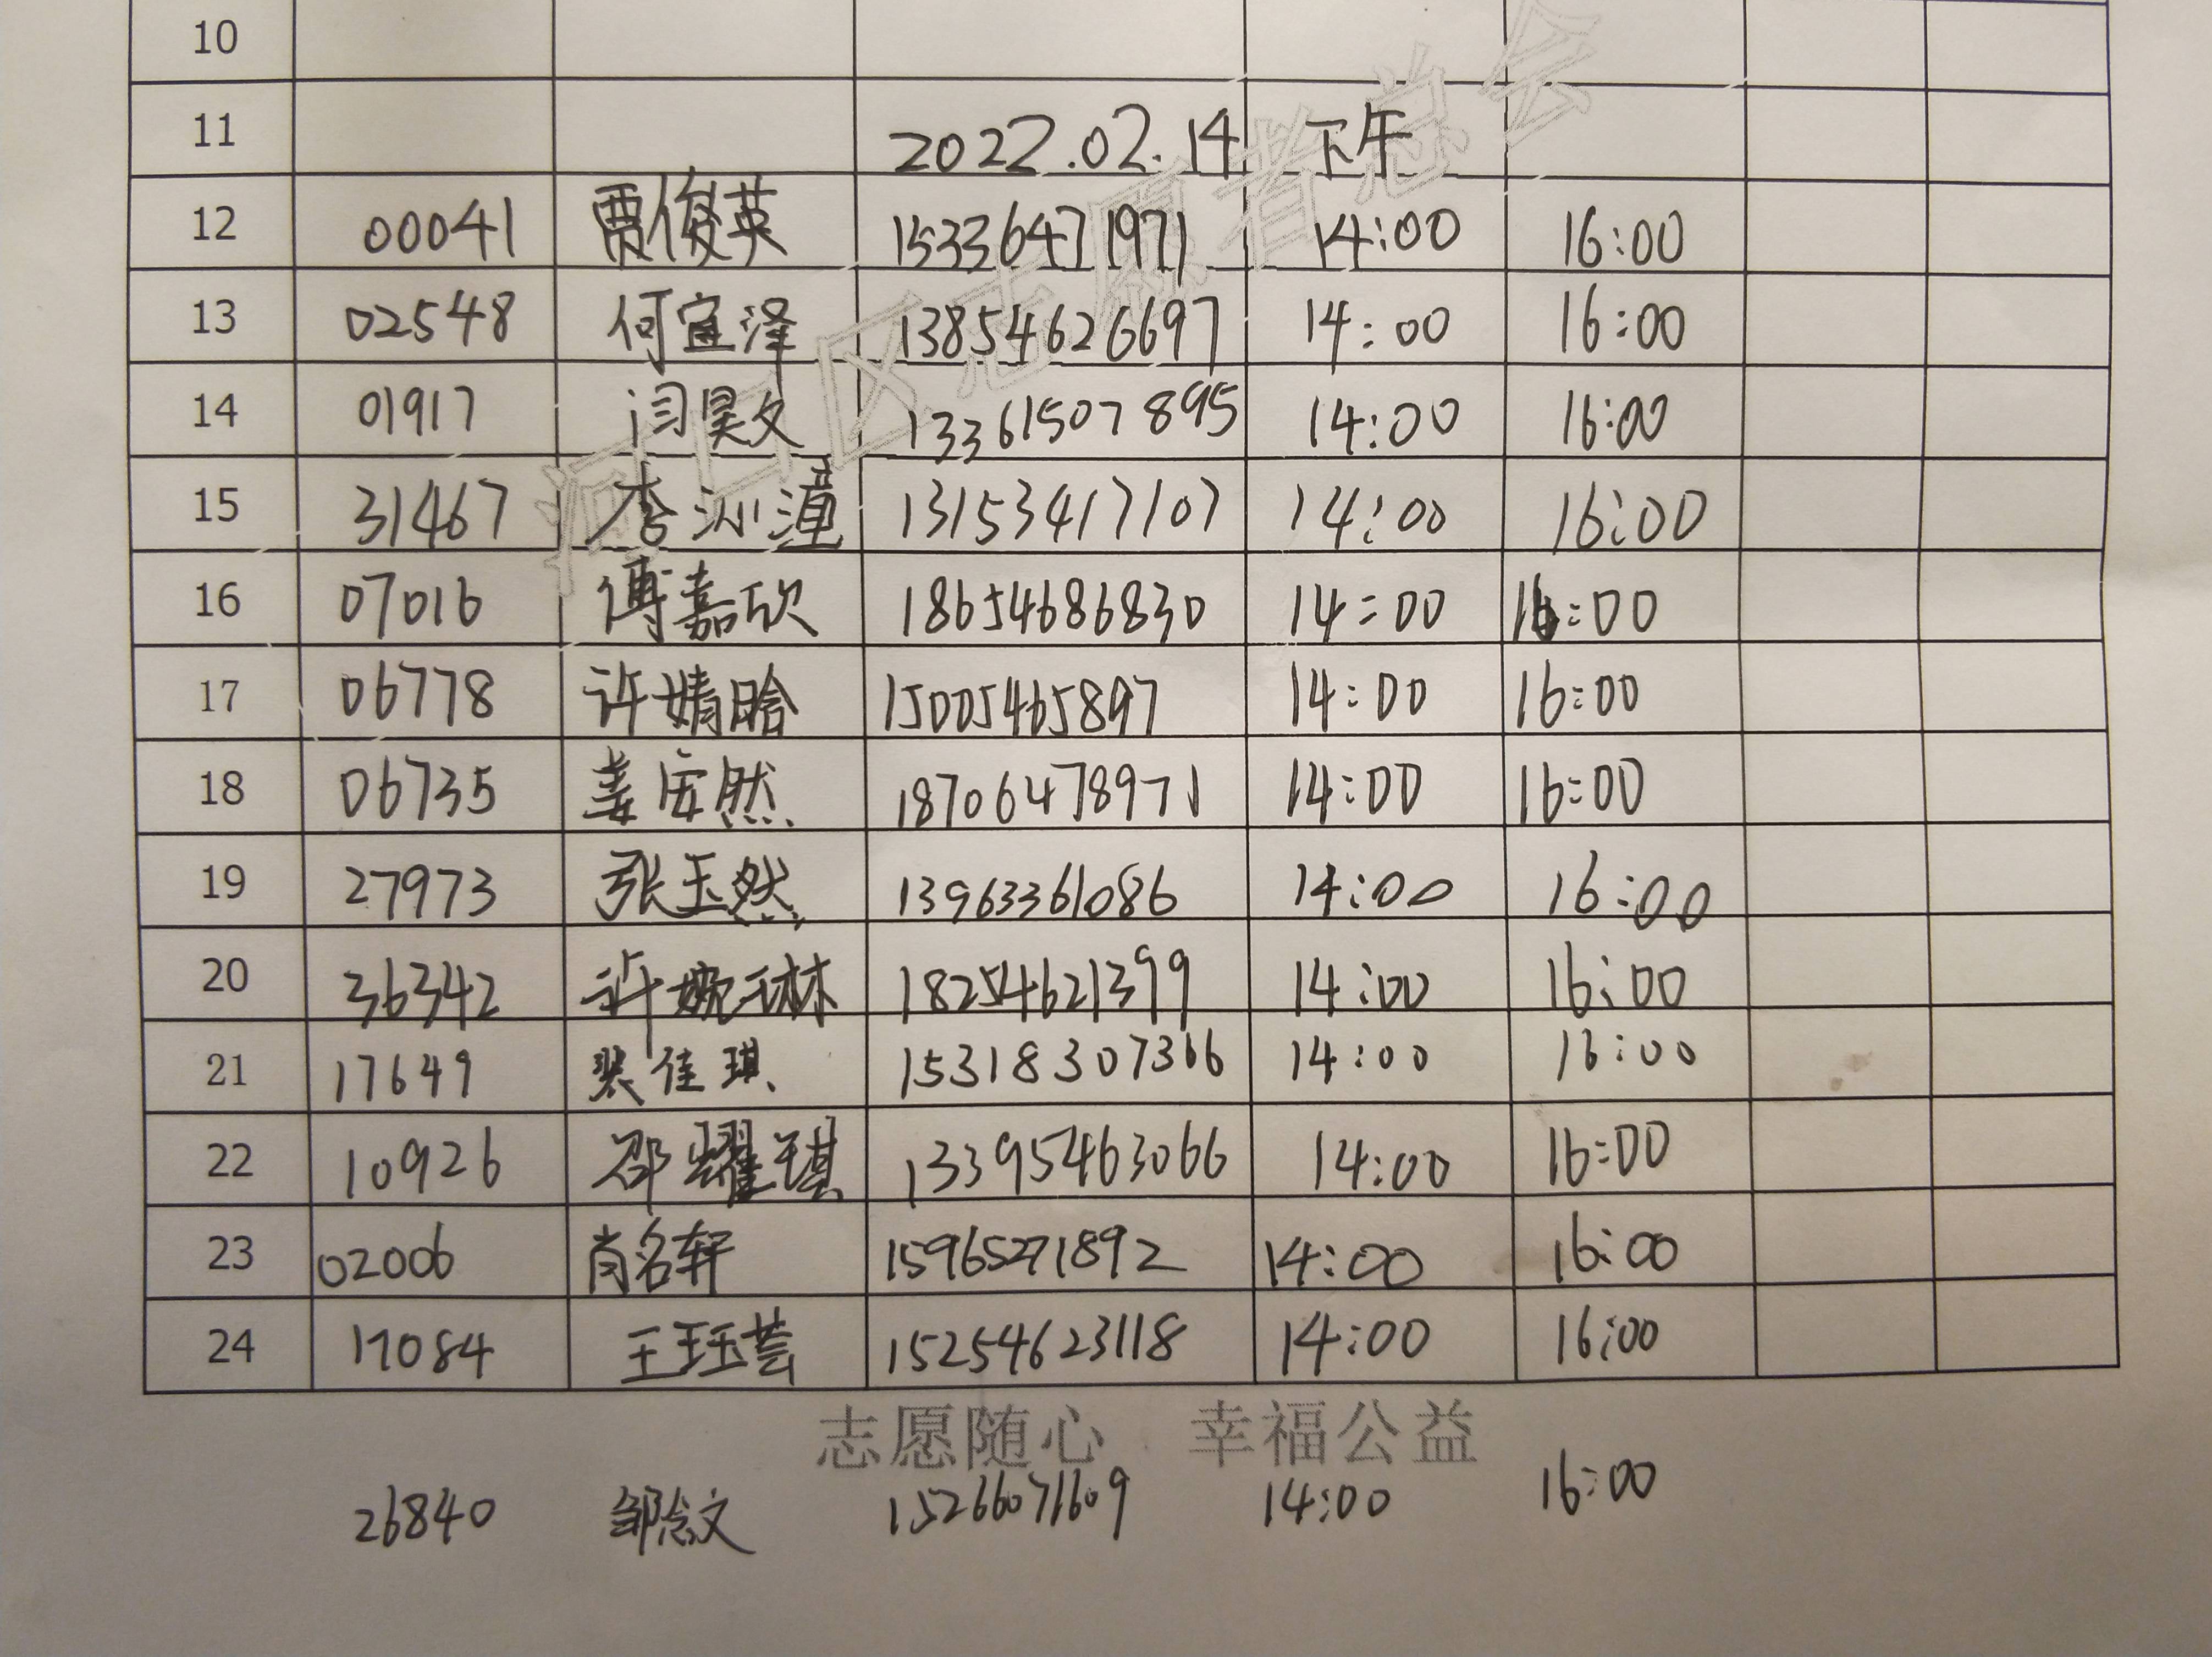 10
11 2022.02.14 下午
12 00041 贾俊英 15336471971 14:00 16:00
13 02548 何宜泽 13854626697 14:00 16:00
14 01917 闫昊文 13361507895 14:00 16:00
15 31467 李沁潼 13153417107 14:00 16:00
16 07016 傅嘉欣 18654686830 14:00 16:00
17 06778 许婧晗 15005465897 14:00 16:00
18 06735 姜安然 18706478971 14:00 16:00
19 27973 张玉然 13963361086 14:00 16:00
20 36342 许婉琳 18254621399 14:00 16:00
21 17649 裴佳琪 15318307366 14:00 16:00
22 10926 邵耀琪 13395463066 14:00 16:00
23 02006 肖名轩 15965271892 14:00 16:00
24 17084 王珏芸 15254623118 14:00 16:00
河口区志愿者总会
志愿随心 幸福公益
26840 邹念文 15266071609 14:00 16:00